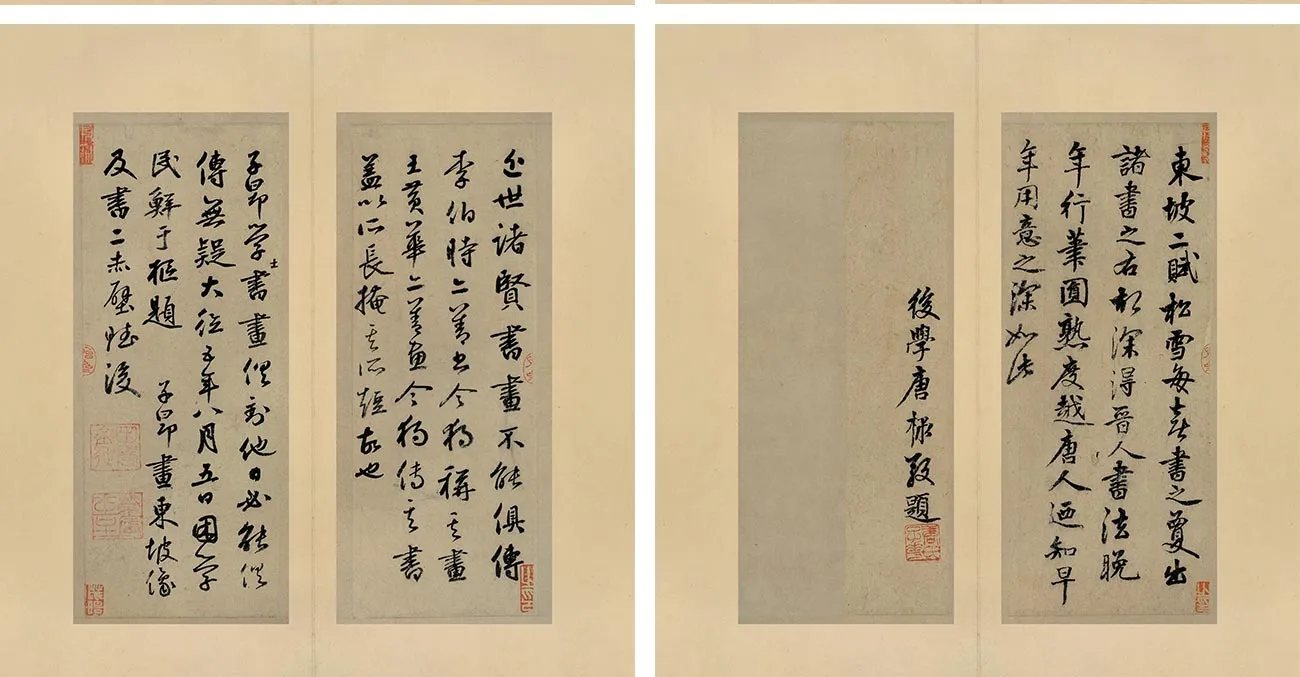 近世諸賢書畫不能俱傳
李伯時亦善書今獨稱其畫
王黃華亦善畫今獨傳其書
蓋以所長掩其所短故也
子昂學士書畫俱到他日必能俱
傳無疑大德五年八月五日困學
民鮮于樞題 子昂畫東坡像
及書二赤壁賦後
東坡二賦松雪每喜書之夐出
諸書之右故深得晉人書法晚
年行筆圓熟度越唐人迺知早
年用意之深如此
後學唐棣敬題